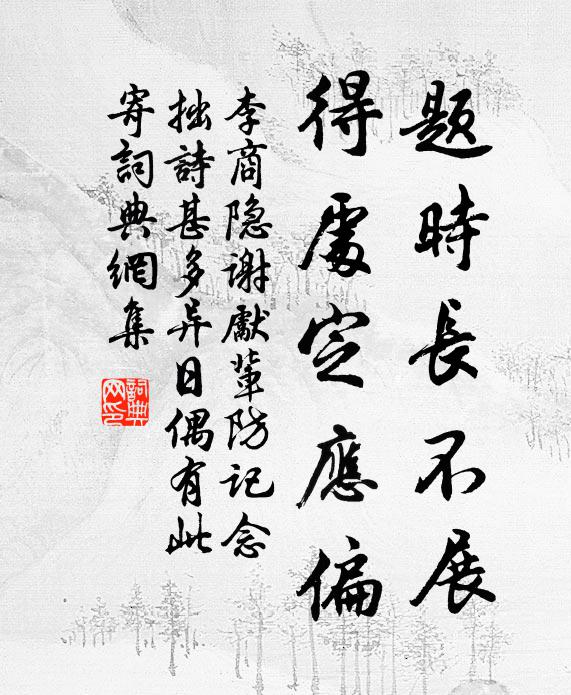 題時長不展
得處定應偏
李商隐謝獻輩防記念
拙詩甚多异日偶有此
寄詞典網集
詞典
网印